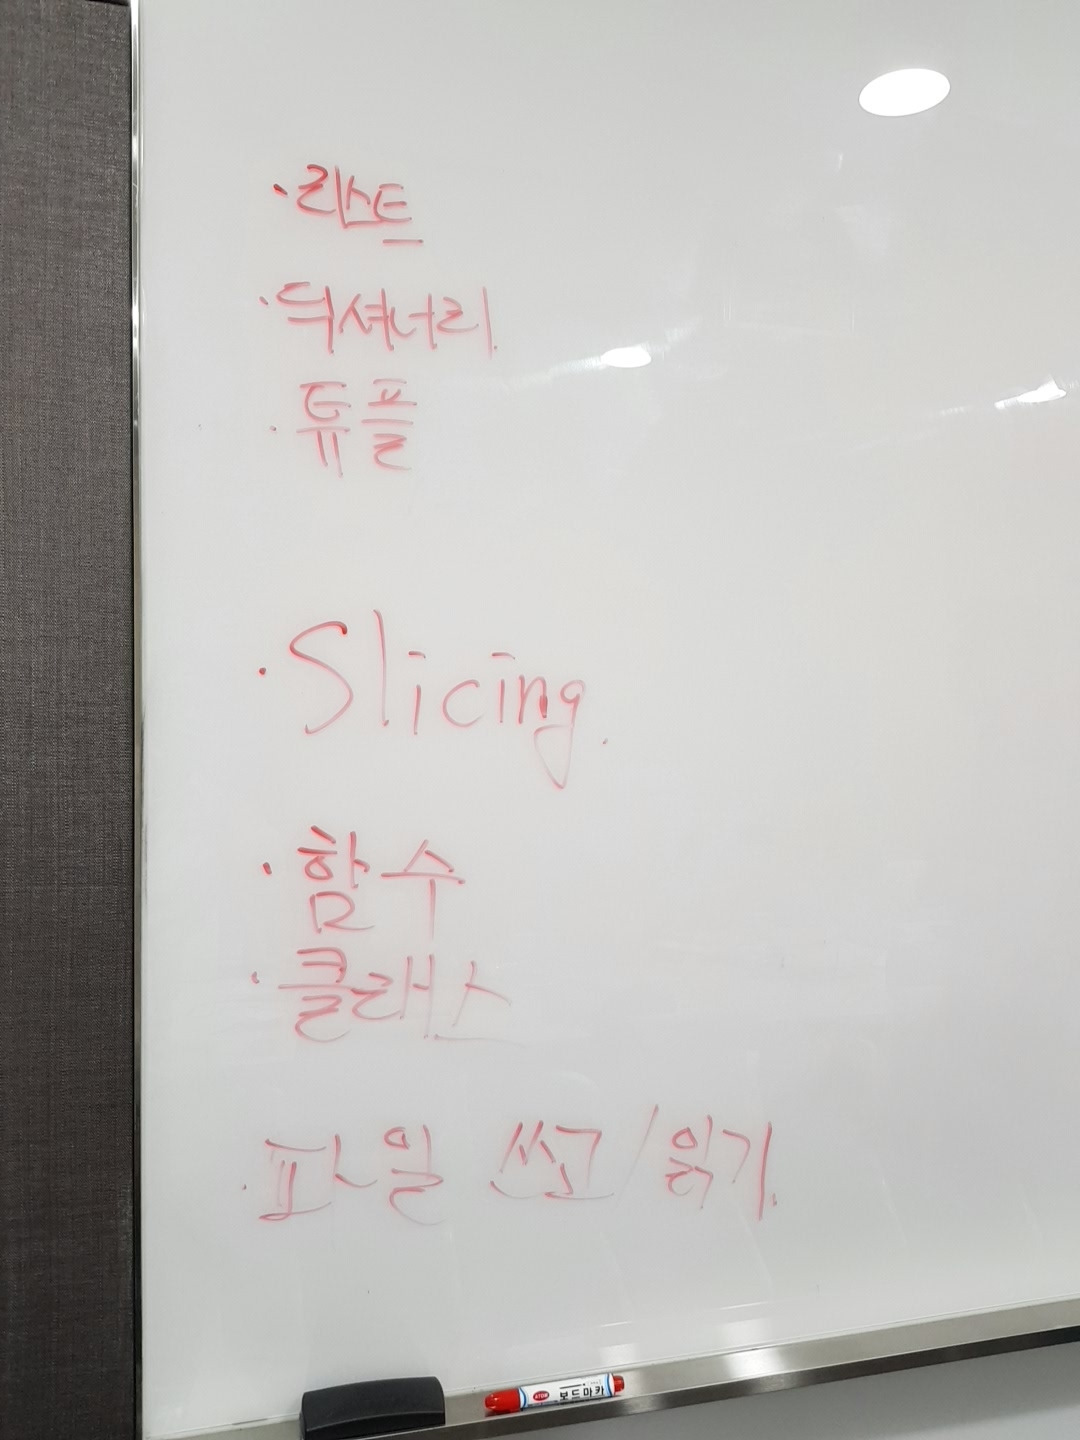 · 리스트
· 딕셔너리.
· 튜플
· Slicing.
· 함수
· 클래스
· 파일 쓰고/읽기.
보드마카